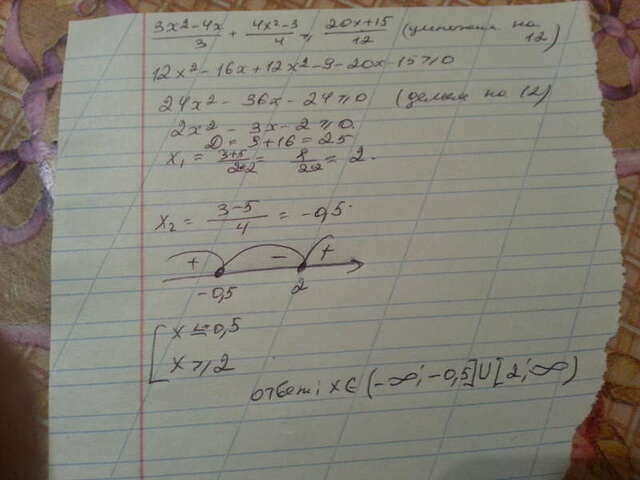 3x²-4x/3 + 4x²-3/4 ≥ 20x+15/12 (умножаем на 12)
12x²-16x+12x²-9-20x-15≥0
24x²-36x-24≥0 (делим на 12)
2x²-3x-2≥0.
D=9+16=25
x₁ = 3+5/2·2 = 8/2·2 = 2.
x₂ = 3-5/4 = -0,5.
+ - +
-0,5 2
[ x ≤ -0,5
x ≥ 2
ответ: x∈(-∞;-0,5]∪[2;∞)